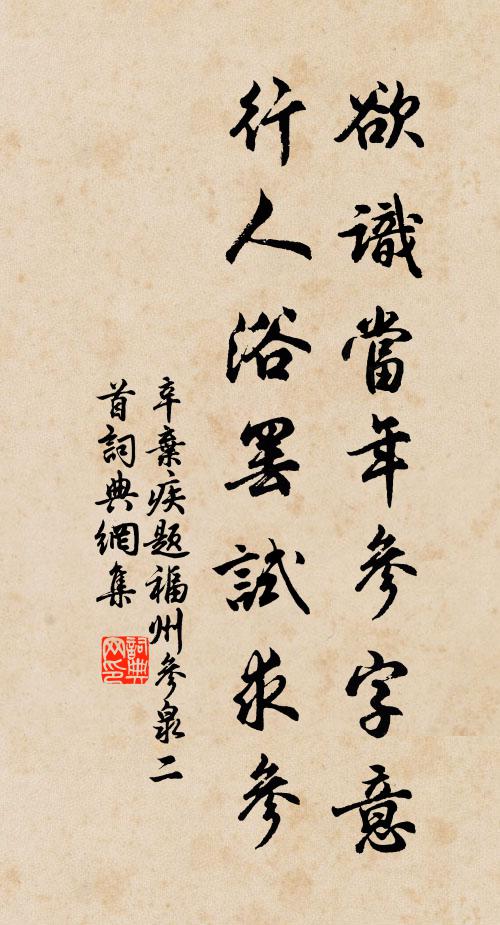 欲識當年參字意
行人浴罢試求參
辛棄疾題福州參泉二
首詞典網集
詞典网印